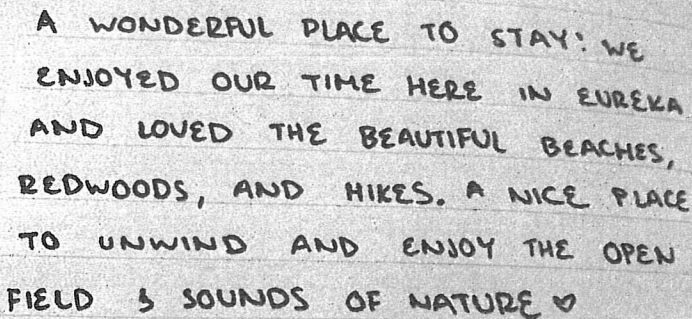 A WONDERFUL PLACE TO STAY! WE
ENJOYED OUR TIME HERE IN EUREKA
AND LOVED THE BEAUTIFUL BEACHES,
REDWOODS, AND HIKES. A NICE PLACE
TO UNWIND AND ENJOY THE OPEN
FIELD & SOUNDS OF NATURE ♡